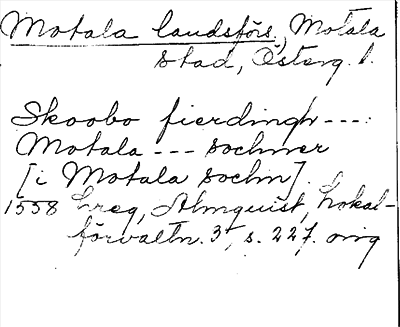 Motala landsförs., Motala
stad, Österg. l.
Skoobo fierdingh ---:
Motala --- sochner
[i Motala sochn].
1558 Ereg, Almquist, Lokal-
förvaltn. 3, s. 227. orig